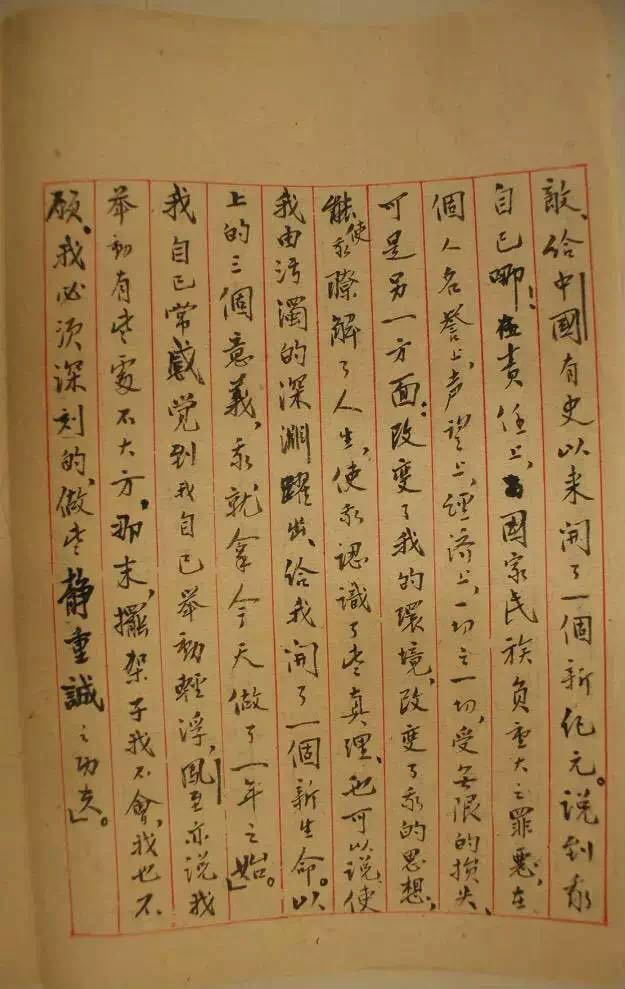 敵、给中國有史以来開了一個新纪元。说到我
自己哪!在责任上,与國家民族负重大之罪惡,在
個人名誉上,声望上,經济上,一切之一切,受无限的损失、
可是另一方面:改变了我的環境,改变了我的思想,
能使我瞭解了人生,使我認識了些真理、也可以说使
我由污濁的深淵躍出、给我開了一個新生命。以
上的三個意義,我就拿今天做了一年之始」。
我自己常感觉到我自己举動輕浮,鳳至亦说我
举動有些處不大方,那末,擺架子我不會,我也不
願、我必须深刻的,做些静重誠之功夫」。